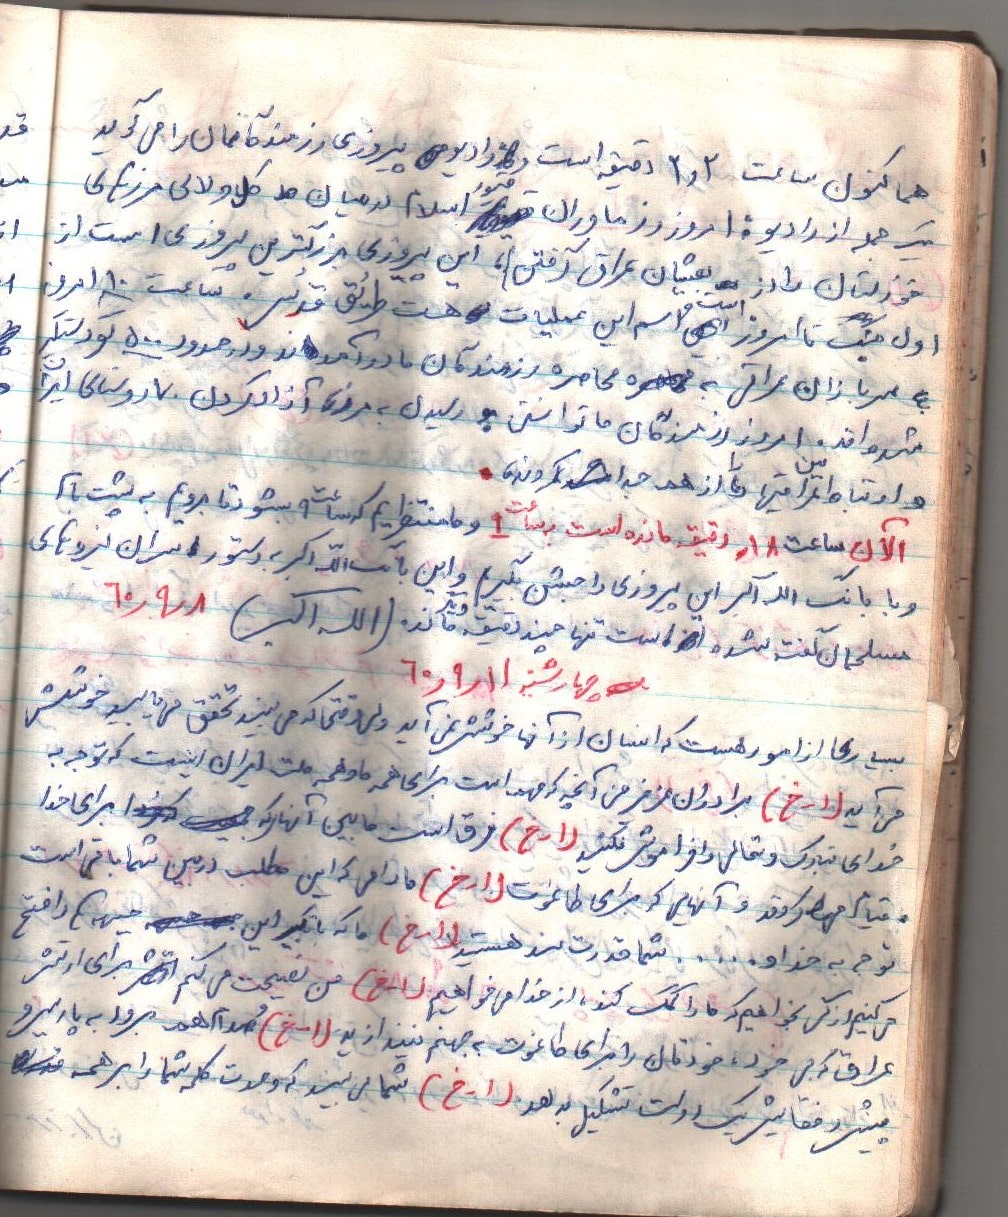 هم اکنون ساعت ۲ و ۲ دقیقه است و رادیو پیروزی رزمندگانمان را می گوید
یک جمله از رادیو: امروز رزم آوران غیور اسلام در میان گل و لای مرزهای
خوزستان را از بعثیان عراق گرفتن این پیروزی بزرگترین پیروزی است از
اول جنگ تا امروز است اسم این عملیات هست طریق قدس. ساعت ۱۰ امروز
سربازان عراقی به محاصره رزمندگان ما درآمدند و در حدود ۵۰۰ تو دستگیر
شده اند. امروز رزمندگان ما توانستن رسیدن به مرز و آزاد کردن ۷۰ روستای ایران
و ارتباط بین عراقیها را از هم جدا کردند.
الآن ساعت ۱۸ دقیقه مانده است به ساعت ۹ و ما منتظریم که ساعت ۹ بشود تا برویم به پشت بام
و با بانگ الله اکبر این پیروزی را جشن بگیریم و این بانگ الله اکبر به دستور سران نیروهای
مسلحمان گفته شده است تنها چند دقیقه مانده. (الله اکبر) ۸ر۹ر۶۰
چهارشنبه ۱۱ر۹ر۶۰
بسیاری از امور هست که انسان از آنها خوشش نمی آید ولی وقتی که می بیند تحقق می یابید خوشش
می آید (ا-خ) برادران عزیز من آنچه که مهم است برای همه ما و همه ملت ایران اینست که توجه به
خدای تبارک و تعالی را فراموش نکنید (ا-خ) فرق است مابین آنها که برای خدا
قیام کردند و آنهایی که برای طاغوت (ا-خ) مادامی که این مطلب در بین شما باقی است
توجه به خدا و ..... شما قدرتمند هستید (ا-خ) ما که با تکبیر این جبهه را فتح
می کنیم از کی بخواهیم که ما را کمک کند، از خدا می خواهیم (ا-خ) من نصیحت می کنم برای ارتش
عراق که می خرد، خودتان را برای طاغوت به جهنم نیندازید (ا-خ) صدام هم برود به پاریس و
پیش رفقایش یک دولت تشکیل بدهد. (ا-خ) شما می بینید که وحدت کلمه شما را بر همه